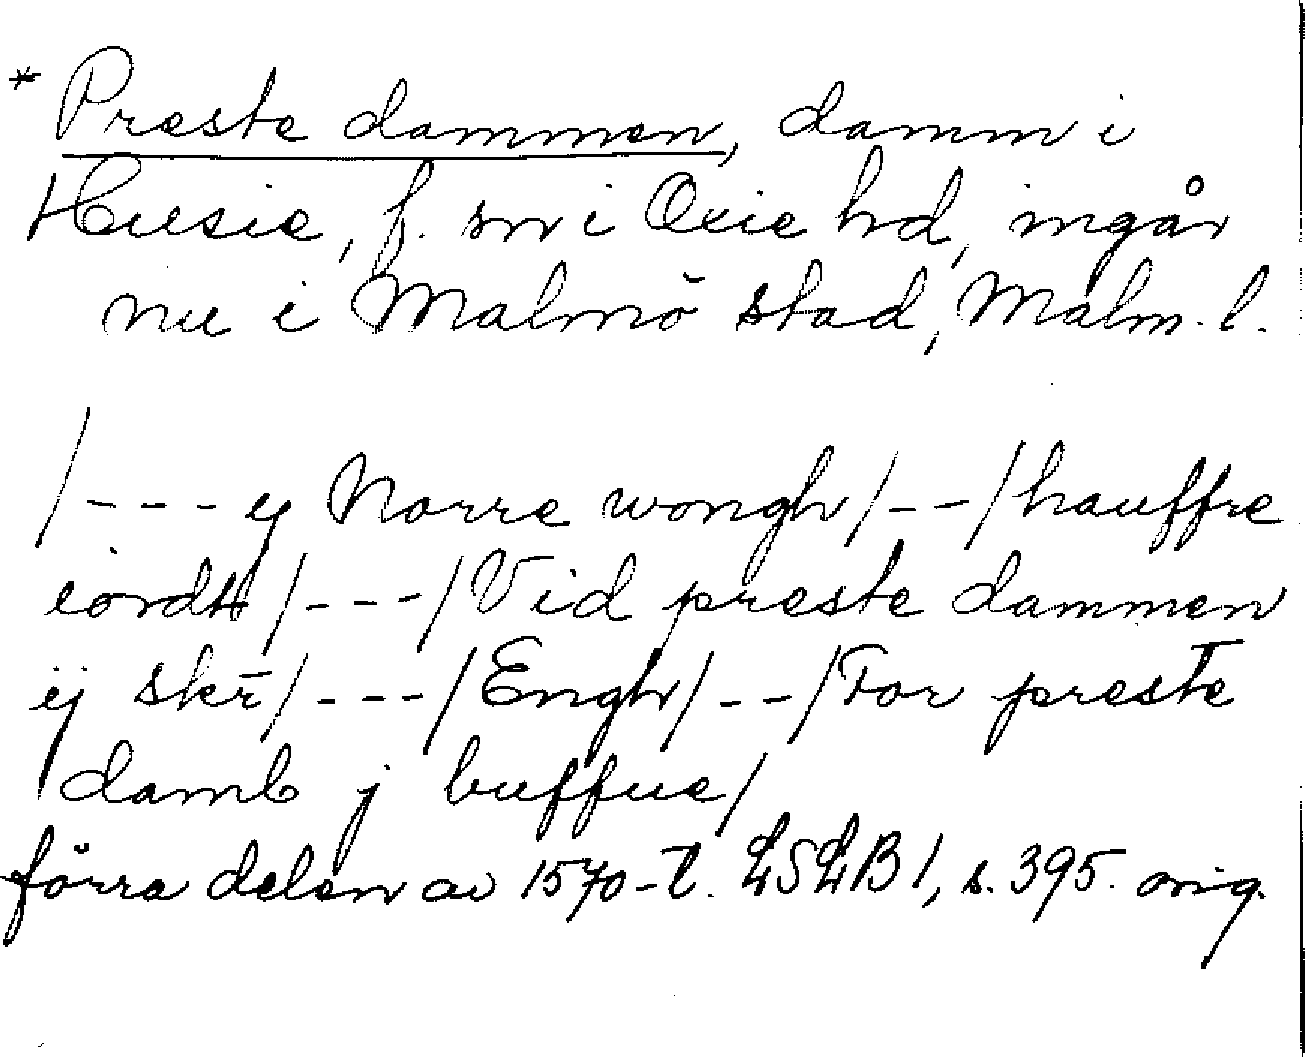 * Preste dammen, damm i
Husie, f. sn i Oxie hd, ingår
nu i Malmö stad, Malm. l.
/--- ij Norre wongh/--/hauffre
iordtt/---/Vid preste dammen
ij skr/---/Engh/--/For preste
damb j buffue/
förra delen av 1570-t. LSLB 1, s. 395. orig.